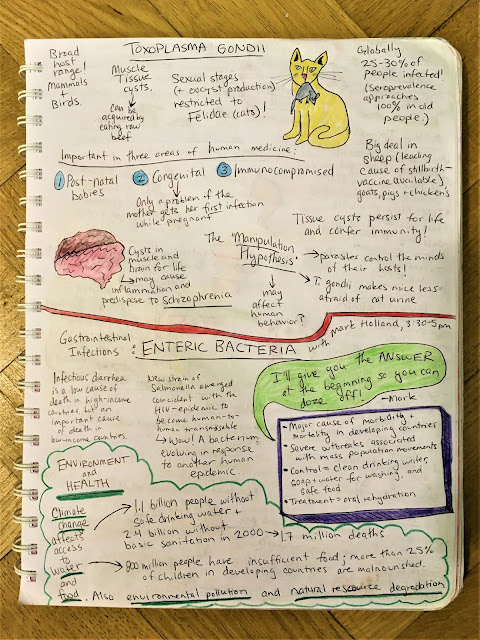 TOXOPLASMA GONDII
Broad
host
range!
Mammals
+
Birds.
Muscle
Tissue
cysts.
can be
acquired by
eating raw
beef
Sexual stages
(+ oocyst production)
restricted to
Felidae (cats)!
Globally
25-30% of
people infected!
(seroprevalence
approaches
100% in old
people.)
Important in three areas of human medicine:
1 Post-natal
babies
2 Congenital
3 Immunocompromised
Only a problem if the
mother gets her first infection
while pregnant
Big deal in
sheep (leading
cause of stillbirth-
vaccine available),
goats, pigs + chickens
Tissue cysts persist for life
and confer immunity!
Cysts in
muscle and
brain for life
may cause
inflammation and
predispose to schizophrenia
The "Manipulation
Hypothesis"
parasites control the
minds of their hosts!
T. gondii makes mice less
afraid of cat urine
may
affect
human
behavior?
Gastrointestinal
Infections : ENTERIC BACTERIA with Mark Holland, 3:30-5pm
Infectious diarrhea
is a low cause of
death in high-income
countries but an
important cause
of death in
low-income countries.
New strain of
Salmonella emerged
coincident with the
HIV-epidemic to
become human-to-
human transmissable
Wow! A bacterium
evolving in response
to another human
epidemic
I'll give you the ANSWER
at the beginning so you can
doze off!
-Mark
- Major cause of morbidity +
mortality in developing countries
- Severe outbreaks associated
with mass population movements
- Control = clean drinking water,
soap + water for washing, and
safe food
- Treatment = oral rehydration
ENVIRONMENT
and
HEALTH
Climate
change
affects
access
to
water
and
food.
1.1 billion people without
safe drinking water +
2.4 billion without
basic sanitation in 2000 → 1.7 million deaths
800 million people have insufficient food; more than 25%
of children in developing countries are malnourished.
Also environmental pollution and natural resource degradation